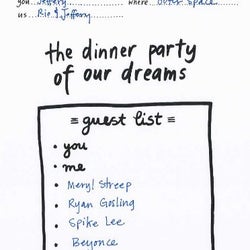 you Jeffery where outer space
us Rie & Jeffery
the dinner party
of our dreams
guest list
• you
• me
• Meryl Streep
• Ryan Gosling
• Spike Lee
• Beyonce